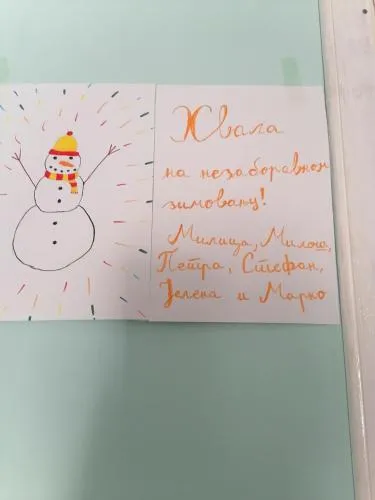 Хвала
на незаборавном
зимовању!
Милица, Милош,
Петра, Стефан,
Јелена и Марко